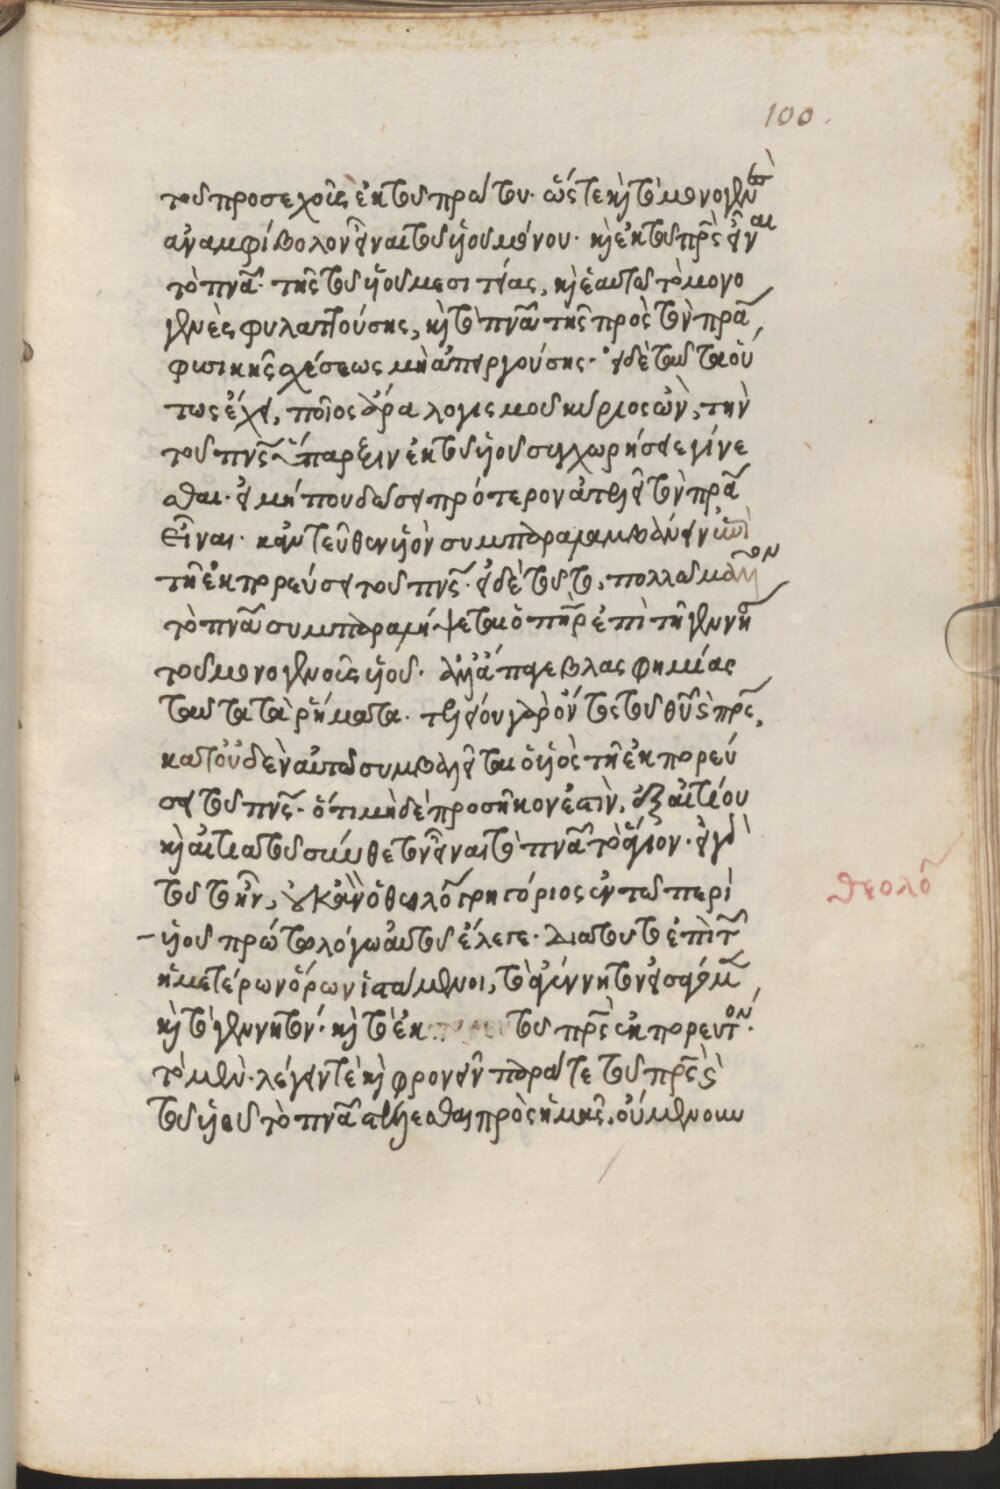 100.
τοῦ προσεχοῦς ἐκ τοῦ πρώτου· ὥστε κὶ τὸ μονογενὲς
ἀναμφίβολον εἶναι τοῦ υἱοῦ μένον· κὶ ἐκ τοῦ πρς εἶναι
τὸ πνα· τῆς τοῦ υἱοῦ μεσιτείας, κὶ ἑαυτῶ τὸ μονο
γενὲς φυλαττούσης, κὶ τὸ πνα τῆς πρὸς τὸν πρα
φυσικῆς σχέσεως μὴ ἀπειργούσης· εἰ δὲ ταῦτα οὕ
τως ἔχει, ποῖος ἄρα λογισμοῦ κύριος ὢν, τὴν
τοῦ πνς ὕπαρξιν ἐκ τοῦ υἱοῦ συγχωρήσειε γίνε
σθαι· εἰ μήπου δώσει πρότερον ἀτελῆ τὸν πρα
εἶναι· κἀντεῦθεν υἱὸν συμπαραλαμβάνειν
τῆ ἐκπορεύσει τοῦ πνς· εἰ δὲ τοῦτο, πολλῶ μᾶλλον
τὸ πνα συμπαραλήψεται ὁ πηρ ἐπὶ τῆ γεννήσει
τοῦ μονογενοῦς υἱοῦ· ἀλλ' ἄπαγε βλασφημίας
ταῦτα τὰ ῥήματα· τελείου γὰρ ὄντος τοῦ θυ κὶ πρς,
κατ' οὐδὲν αὐτῶ συμβαλεῖται ὁ υἱὸς τῆ ἐκπορεύ
σει τοῦ πνς· ὅτι μὴ δὲ προσῆκον ἐστὶν, ἐξ αἰτίου
κὶ αἰτιατοῦ σύνθετον εἶναι τὸ πνα τὸ ἅγιον· εἰ γὰρ
τοῦτ' ἦν, οὐκ ἂν ὁ θεολο γρηγόριος ἐν τῶ περὶ
υἱοῦ πρώτω λόγω αὐτοῦ ἔλεγε· διὰ τοῦτο ἐπὶ τ
ἡμετέρων ὅρων ἱστάμενοι, τὸ ἀγέννητον εἰσάγομεν
κὶ τὸ γεννητόν· κὶ τὸ ἐκ τοῦ πρς ἐκπορευτόν·
τὸ μὲν· λέγειν τὲ κὶ φρονεῖν παρά τε τοῦ πρς κὶ
τοῦ υἱοῦ τὸ πνα στέλλεσθαι πρὸς ἡμᾶς, οὐ μὲν οὖν
θεολο